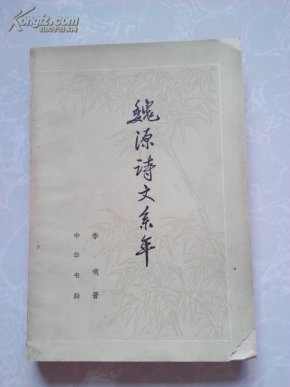 Kongfz.com
孔夫子旧书网
魏源诗文系年
李瑚著
中华书局